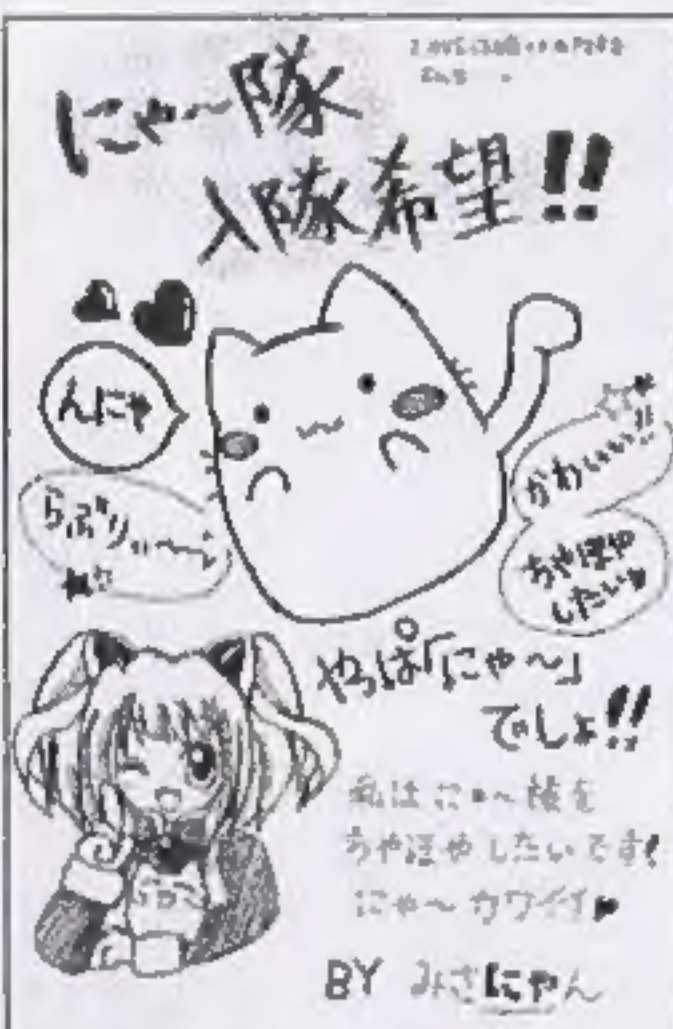 にゃ～隊
入隊希望!!
んにゃ
らぶりぃ～
かわいい!!
ちやほや
したい
やっぱ「にゃ～」
でしょ!!
私はにゃ～様を
ちやほやしたいです!
にゃ～カワイイ♥
BY みさにゃん